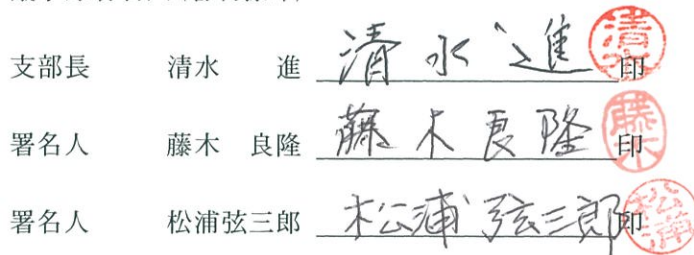 支部長 清水 進 清水 進 印 清水
署名人 藤木 良隆 藤木良隆 印 藤木
署名人 松浦弦三郎 松浦弦三郎 印 松浦